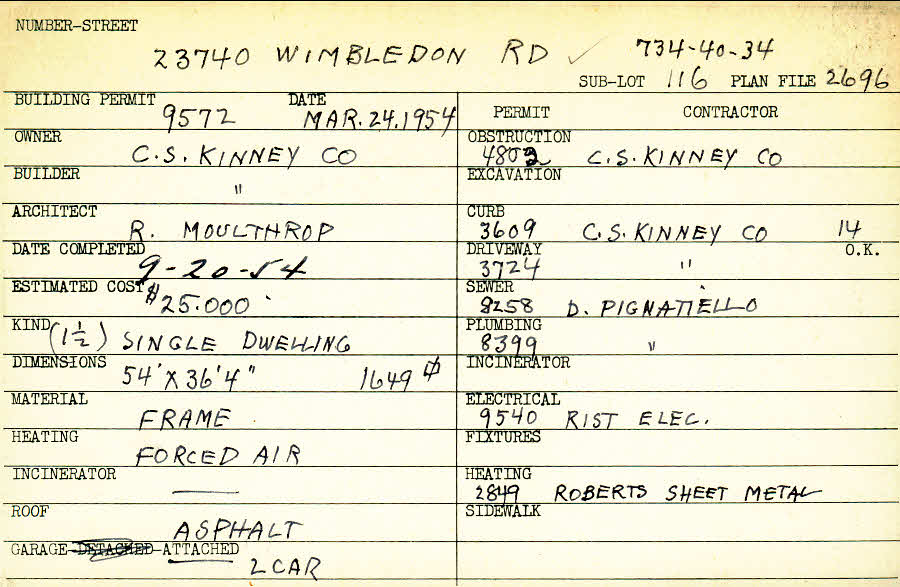 NUMBER-STREET
23740 WIMBLEDON RD ✓ 734-40-34
SUB-LOT 116 PLAN FILE 2696
BUILDING PERMIT 9572 DATE MAR.24.1954
PERMIT CONTRACTOR
OWNER C.S. KINNEY CO
OBSTRUCTION 4802 C.S. KINNEY CO
BUILDER "
EXCAVATION
ARCHITECT R. MOULTHROP
CURB 3609 C.S. KINNEY CO 14
DATE COMPLETED 9-20-54
DRIVEWAY 3724 " O.K.
ESTIMATED COST $25.000
SEWER 8258 D. PIGNATIELLO
KIND (1½) SINGLE DWELLING
PLUMBING 8399 "
DIMENSIONS 54' X 36'4" 1649 ⌽
INCINERATOR
MATERIAL FRAME
ELECTRICAL 9540 RIST ELEC.
HEATING FORCED AIR
FIXTURES
INCINERATOR —
HEATING 2849 ROBERTS SHEET METAL
ROOF ASPHALT
SIDEWALK
GARAGE-DETACHED-ATTACHED
2 CAR